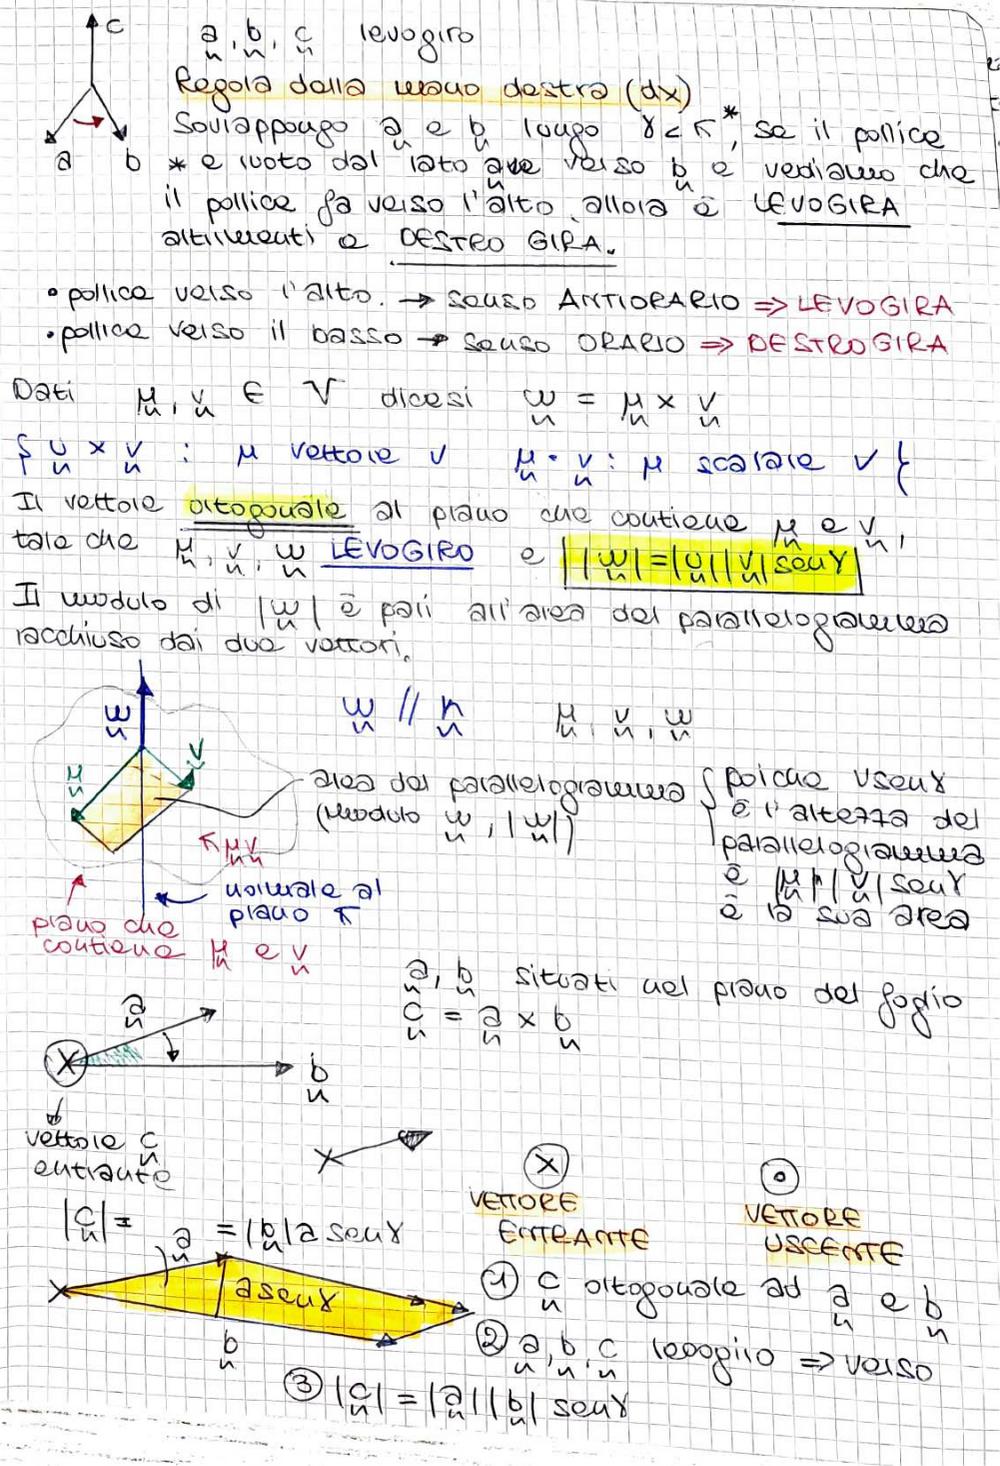 c
a, b, c levogiro
Regola della mano destra (dx)
Sovrappongo a e b lungo γ<π*, se il pollice
a b * e ruoto dal lato a verso b e vediamo che
il pollice fa verso l'alto allora è LEVOGIRA
altrimenti è DESTRO GIRA.
• pollice verso l'alto. → senso ANTIORARIO ⇒ LEVOGIRA
• pollice verso il basso → senso ORARIO ⇒ DESTROGIRA
Dati μ, v ∈ V dicesi w = μ × v
{ u × v : μ vettore v μ • v : μ scalare v }
Il vettore ortogonale al piano che contiene μ e v,
tale che μ, v, w LEVOGIRO e |w|=|u||v| senγ
Il modulo di |w| è pari all'area del parallelogramma
racchiuso dai due vettori.
w w // n μ, v, w
μ v
area del parallelogramma { poiche vsenγ
(modulo w, |w|) è l'altezza del
parallelogramma
π μv è |μ||v| senγ
è la sua area
normale al
piano π
piano che
contiene μ e v
a, b situati nel piano del foglio
c = a × b
a
X
b
vettore c
entrante
X X
VETTORE
ENTRANTE
VETTORE
USCENTE
|c| = = |b| a senγ
a
X asenγ
b
① c ortogonale ad a e b
② a, b, c levogiro ⇒ verso
③ |c| = |a| |b| senγ